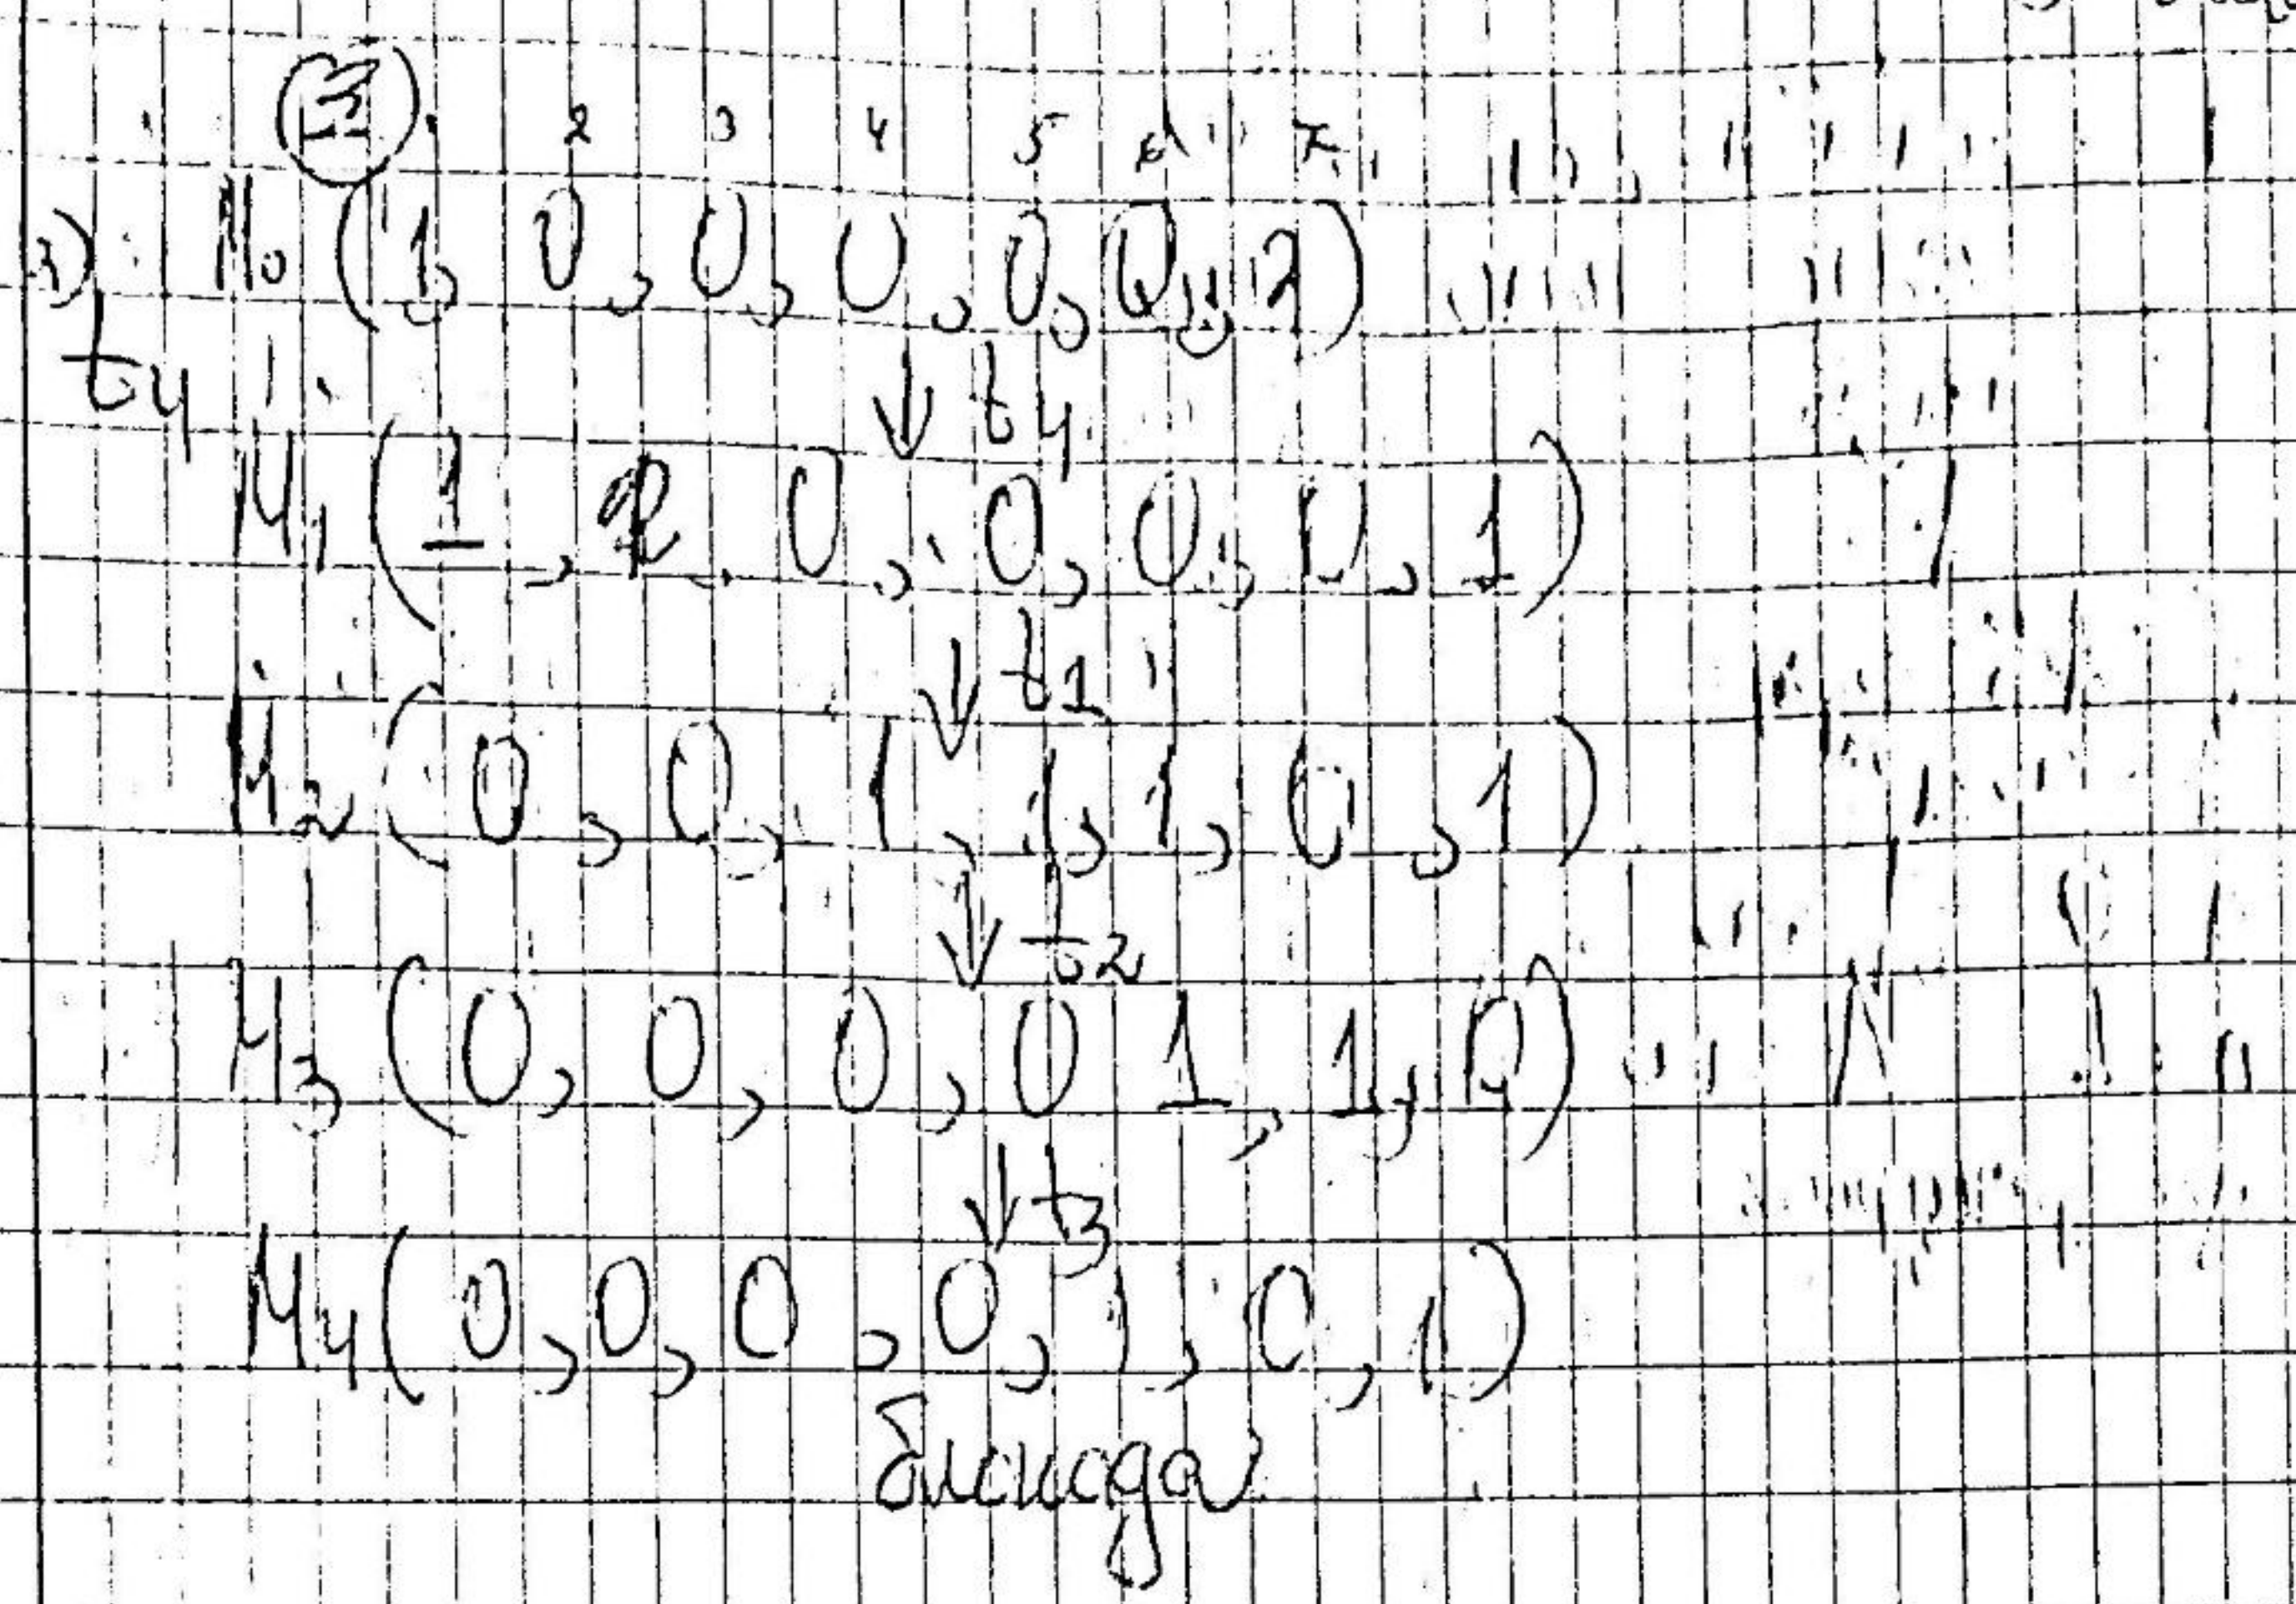 2 3 4 5 6 7
M₀ (1, 0, 0, 0, 0, 0, 2)
t4 ↓ t4
M₁ (1, 2, 0, 0, 0, 0, 1)
↓ t1
M₂ (0, 0, 1, 1, 1, 0, 1)
↓ t2
M₃ (0, 0, 0, 0 1, 1, 0)
↓ t3
M₄ (0, 0, 0, 0, 1, 0, 1)
блокада